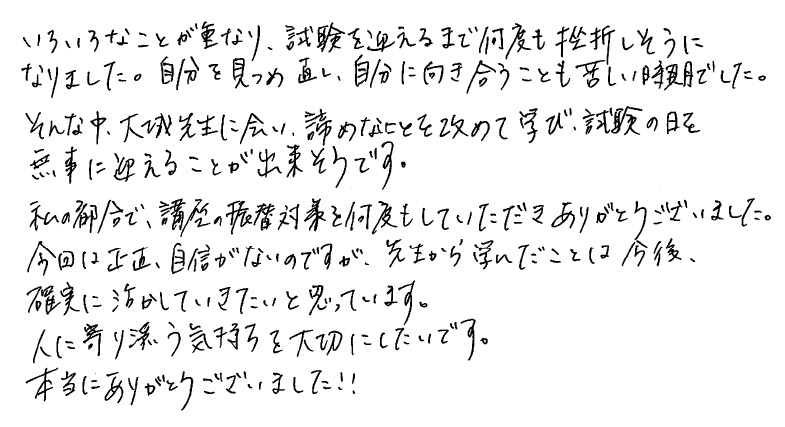 いろいろなことが重なり、試験を迎えるまで何度も挫折しそうに
なりました。自分を見つめ直し、自分に向き合うことも苦しい時期でした。
そんな中、大城先生に会い、諦めないことを改めて学び、試験の日を
無事に迎えることが出来そうです。
私の都合で、講座の振替対象を何度もしていただきありがとうございました。
今回は正直、自信がないのですが、先生から学んだことは今後、
確実に活かしていきたいと思っています。
人に寄り添う気持ちを大切にしたいです。
本当にありがとうございました!!